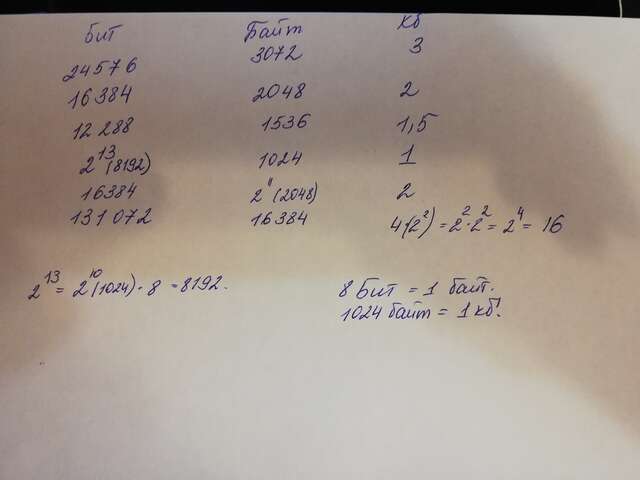 бит Байт кб
24576 3072 3
16384 2048 2
12288 1536 1,5
2¹³(8192) 1024 1
16384 2¹¹(2048) 2
131072 16384 4(2²) = 2²·2² = 2⁴ = 16
2¹³ = 2¹⁰(1024)·8 = 8192.
8 Бит = 1 байт.
1024 байт = 1 кб.